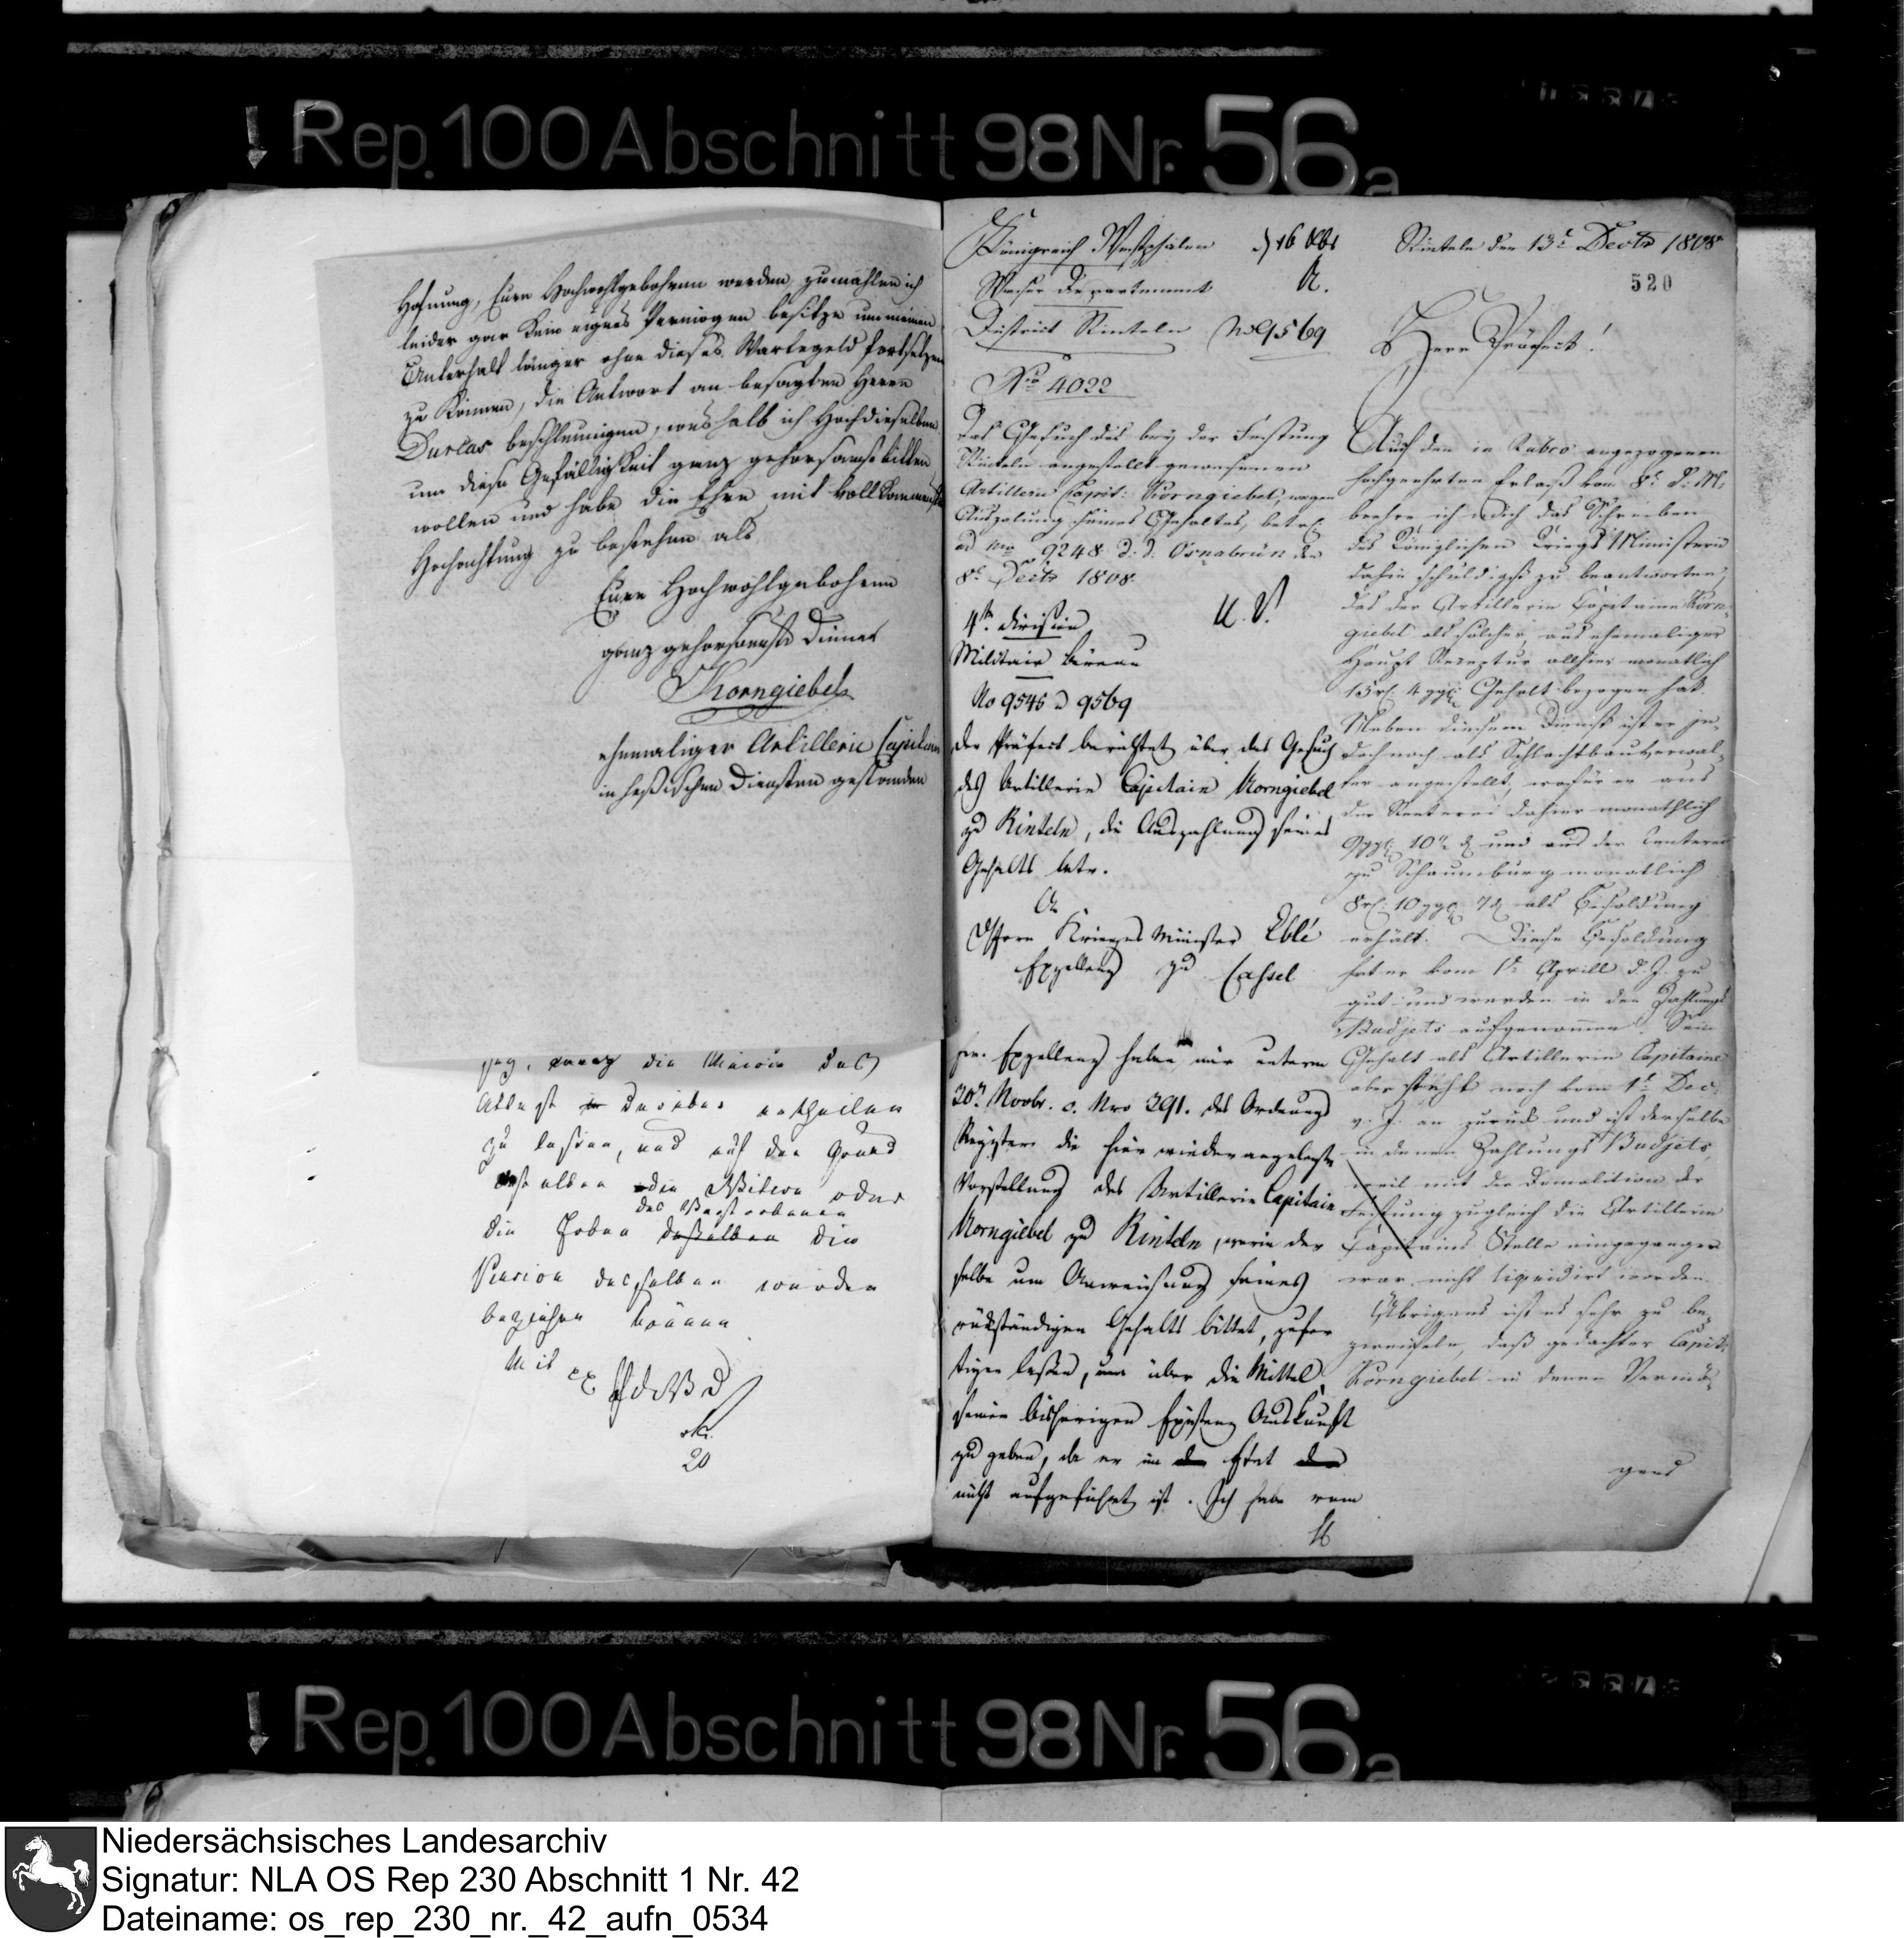 Rep. 100 Abschnitt 98 Nr. 56a
Hofnung, Euer Hochwohlgebohren werden, zumahlen ich
leider gar kein eignes Vermögen besitze um meinen
Unterhalt länger ohne dieses Wartegeld fortsetzen
zu können, die Antwort an besagten Herrn
Duclas beschleunigen, weshalb ich Hochdieselben
um diese Gefälligkeit ganz gehorsamst bitten
wollen und habe die Ehre mit vollkommenster
Hochachtung zu bestehen als
Euer Hochwohlgebohren
ganz gehorsamster Diener
Korngiebel
ehemaliger Artillerie Capitain
in heßischen Diensten gestanden
die
Attest darüber ertheilen
zu lassen, und auf den Grund
desselben die Witwe oder
des Verstorbenen
die Erben deßelben die
Pension desselben werden
beziehen können
Mit
20
Königreich Westphalen
Weser Departement
District Rinteln
16 Xbr
No 9569
No 4022
Das Gesuch des bey der Festung
Rinteln angestellt gewesenen
Artillerie Capit: Korngiebel, wegen
Auszalung seines Gehaltes, betr.
ad No 9248 d. d. Osnabrück den
8t Decbr 1808.
4te Division
U. S.
Militair Büreau
No 9545 9569
Der Präfect berichtet über das Gesuch
des Artillerie Capitain Korngiebel
zu Rinteln, die Auszahlung seines
Gehalts betr.
Herrn Krieges Minister Eblé
Exzellenz zu Cassel
Exzellenz haben mir unterm
30n Novbr. c. Nro 291. des Ordnungs
Registers die hier wieder angelegte
Vorstellung des Artillerie Capitain
Korngiebel zu Rinteln, worin der
selbe um Anweisung seines
rükständigen Gehalts bittet, zufer
tigen laßen, um über die Mittel
seiner bisherigen Existenz Auskunft
zu geben, da er im Etat
nicht aufgeführt ist. Ich habe vom
Rinteln den 13t Decbr 1808
520
Herr Präfect!
Auf den in Rubro angezogenen
hochgeehrten Erlaß vom 8t d. M.
beehre ich mich das Schreiben
des Königlichen Kriegs Ministerii
dahin schuldigst zu beantworten,
daß der Artillerie Capitaine Korn-
giebel als solcher, aus ehemaliger
Haupt Receptur allhier monatlich
15 rh. 4 ggl. Gehalt bezogen hat.
Neben diesem Dienst ist er je-
doch noch als Schlachtbauverwal-
ter angestellt, wofür er aus
der Renterei dahier monathlich
9 ggl. 10 1/2 d und aus der Renterei
zu Schaumburg monatlich
8 rh. 10 ggl. 7 d als Besoldung
erhält. Diese Besoldung
hat er vom 1t Aprill d. J. zu
gut und werden in den Zahlungs
Budjets aufgenommen. Sein
Gehalt als Artillerie Capitaine
aber steht noch vom 1t Dec.
v. J. an zurück und ist derselbe
in denen Zahlungs Budjets,
weil mit der Demolition der
Festung zugleich die Artillerie
Capitains Stelle eingegangen
war, nicht liquidirt worden.
Übrigens ist es sehr zu be-
zweifeln, daß gedachter Capit:
Korngiebel in denen Vermö-
gens
Rep. 100 Abschnitt 98 Nr. 56a
Niedersächsisches Landesarchiv
Signatur: NLA OS Rep 230 Abschnitt 1 Nr. 42
Dateiname: os_rep_230_nr._42_aufn_0534